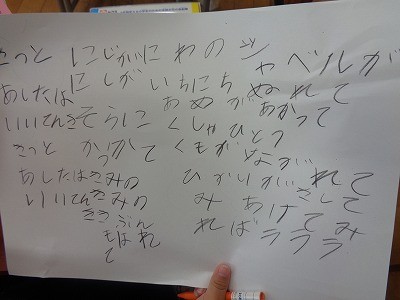 きっと にじがにわの シャベルが
あしたは にじが いちにち ぬれて
あめが あがって
いいてんきそらに くしゃひとつ
きっと かかって くもがなが れて
あしたはきみの ひかりが さして
いいてんききみの みあげてみ
きぶん れば ラララ
もはれ
て